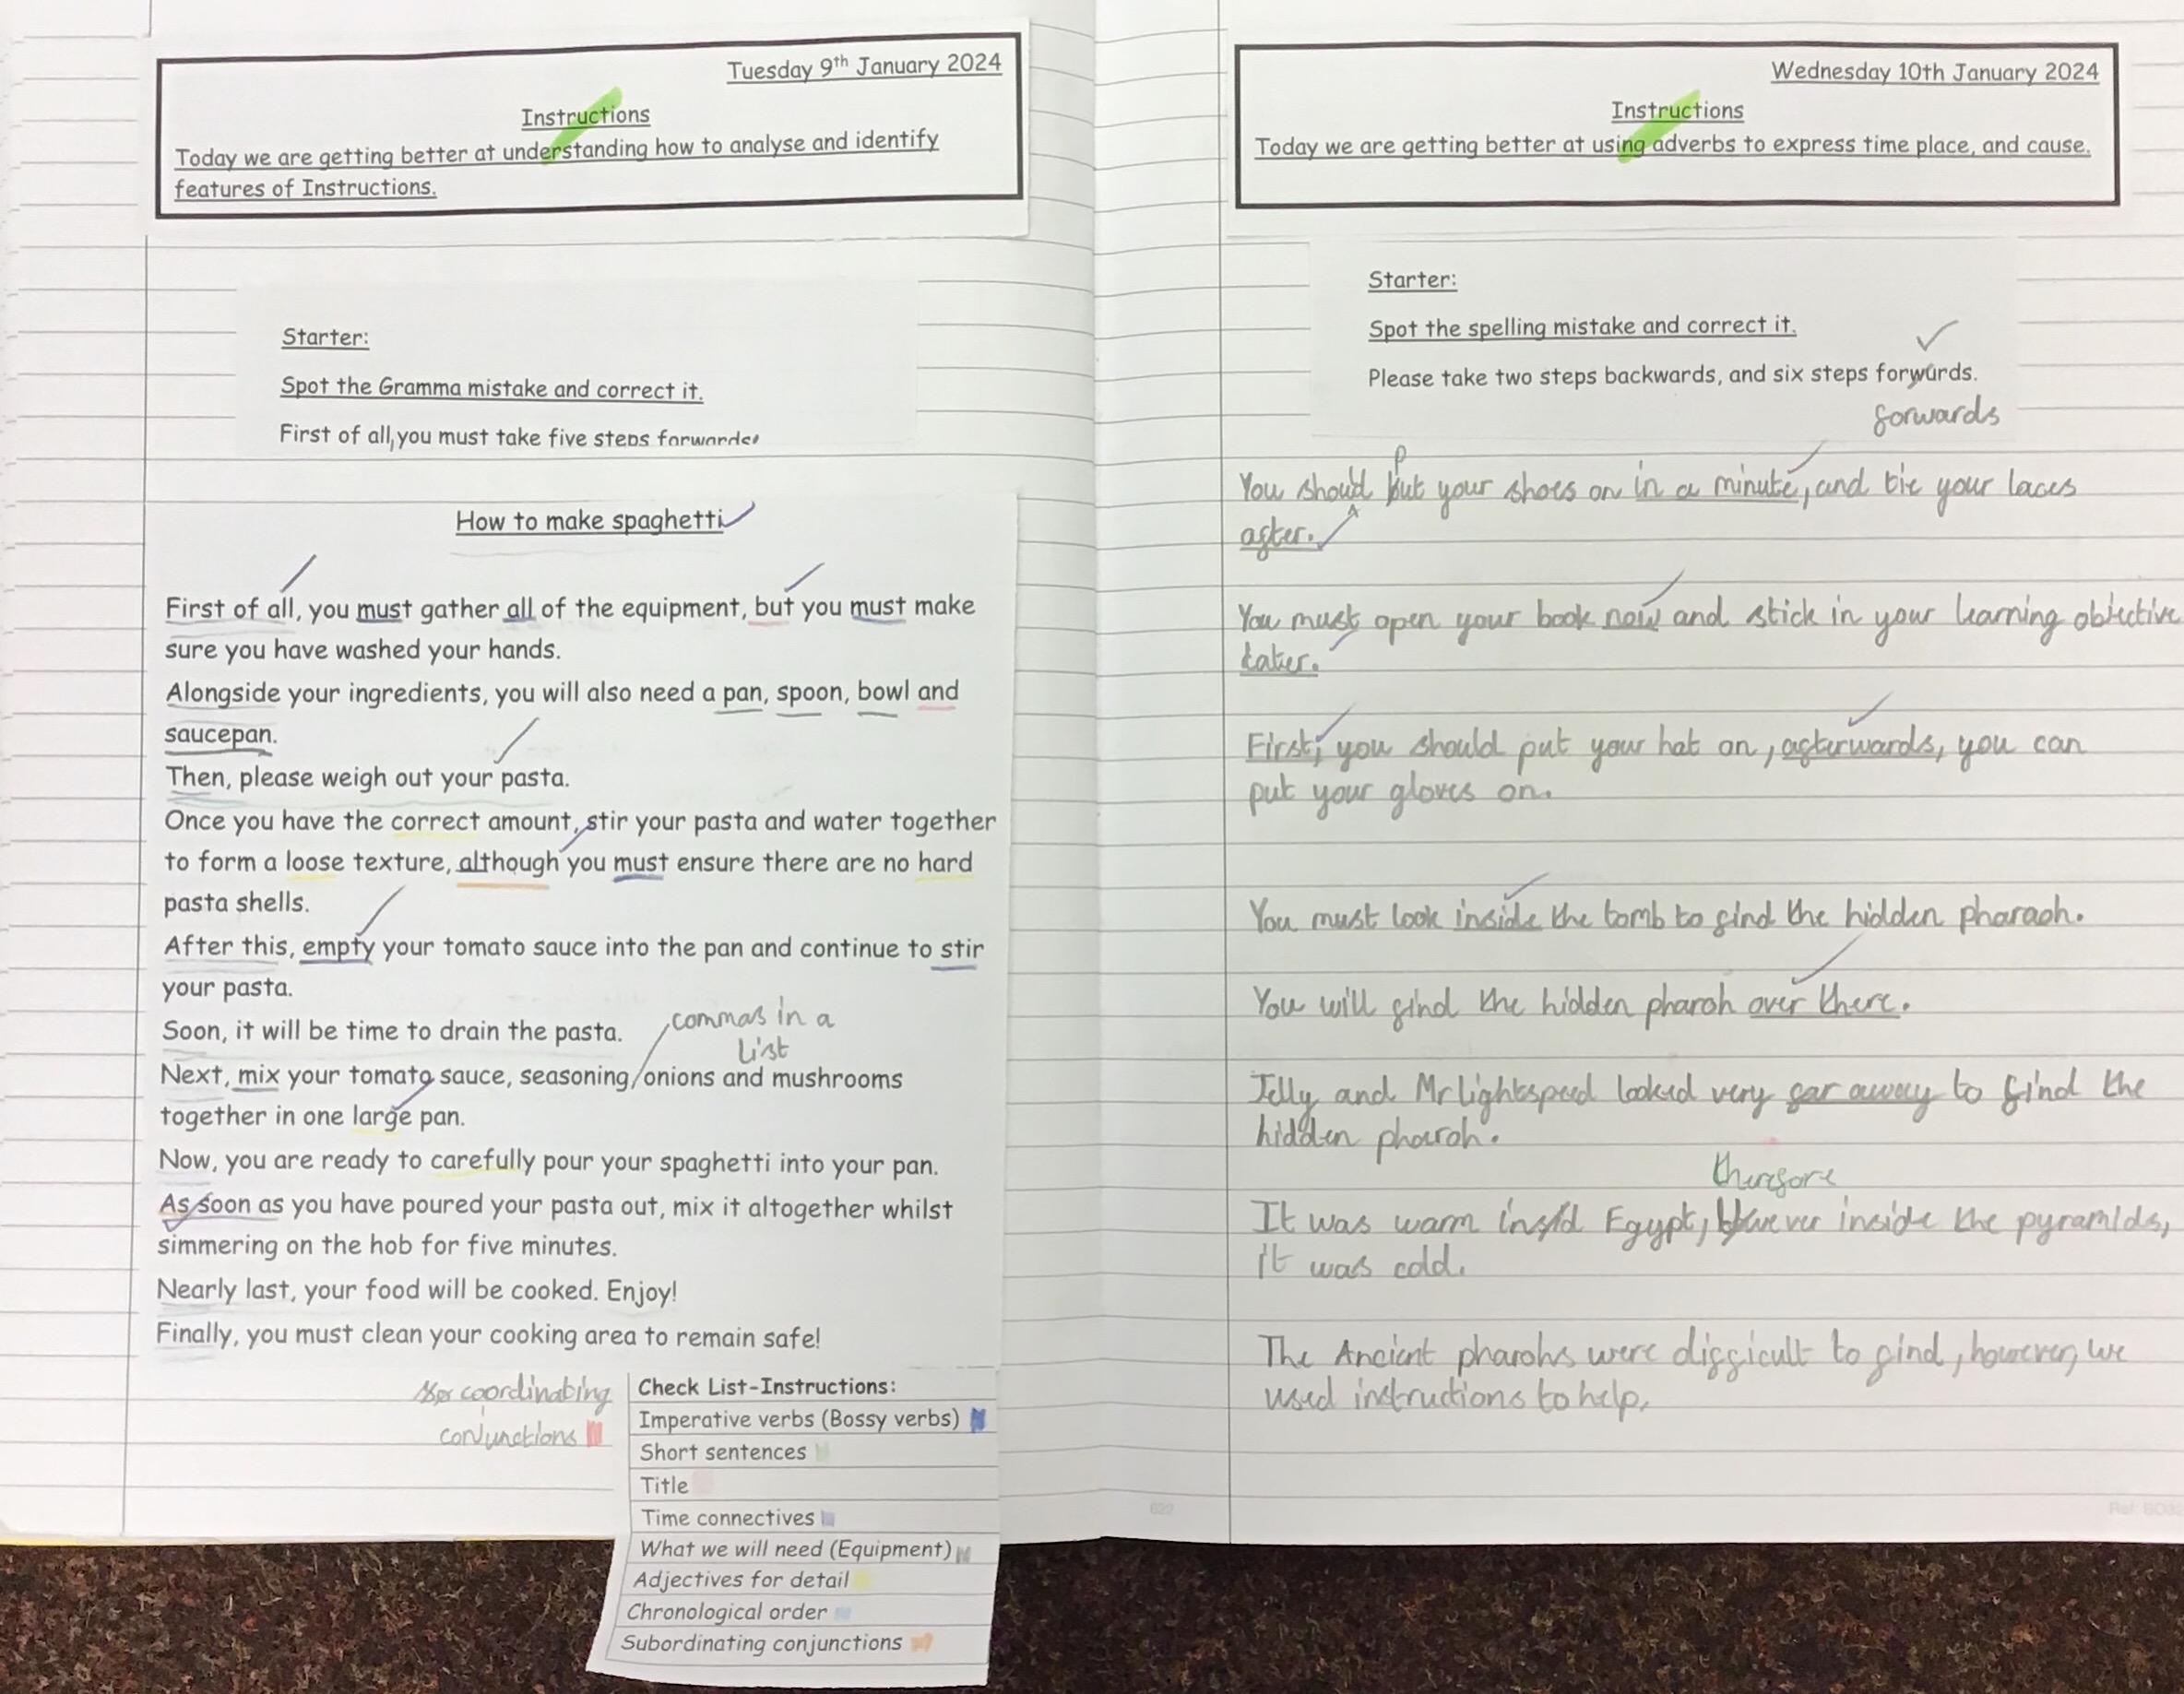 Tuesday 9th January 2024
Instructions
Today we are getting better at understanding how to analyse and identify
features of Instructions.
Starter:
Spot the Gramma mistake and correct it.
First of all, you must take five steps forwards
How to make spaghetti
First of all, you must gather all of the equipment, but you must make
sure you have washed your hands.
Alongside your ingredients, you will also need a pan, spoon, bowl and
saucepan.
Then, please weigh out your pasta.
Once you have the correct amount, stir your pasta and water together
to form a loose texture, although you must ensure there are no hard
pasta shells.
After this, empty your tomato sauce into the pan and continue to stir
your pasta.
Soon, it will be time to drain the pasta.
, commas in a
list
Next, mix your tomato sauce, seasoning, onions and mushrooms
together in one large pan.
Now, you are ready to carefully pour your spaghetti into your pan.
As soon as you have poured your pasta out, mix it altogether whilst
simmering on the hob for five minutes.
Nearly last, your food will be cooked. Enjoy!
Finally, you must clean your cooking area to remain safe!
coordinating
conjunctions
Check List-Instructions:
Imperative verbs (Bossy verbs)
Short sentences
Title
Time connectives
What we will need (Equipment)
Adjectives for detail
Chronological order
Subordinating conjunctions
622
Wednesday 10th January 2024
Instructions
Today we are getting better at using adverbs to express time place, and cause.
Starter:
Spot the spelling mistake and correct it.
Please take two steps backwards, and six steps forwurds.
forwards
You shoud put your shoes on in a minute, and tie your laces
after.
You must open your book now and stick in your learning objective
later.
First, you should put your hat on, afterwards, you can
put your gloves on.
You must look inside the tomb to find the hidden pharaoh.
You will find the hidden pharoh over there.
Jelly and Mr Lightspeed looked very far away to find the
hidden pharoh.
therefore
It was warm insid Egypt, however inside the pyramids,
it was cold.
The Ancient pharohs were difficult to find, however, we
used instructions to help.